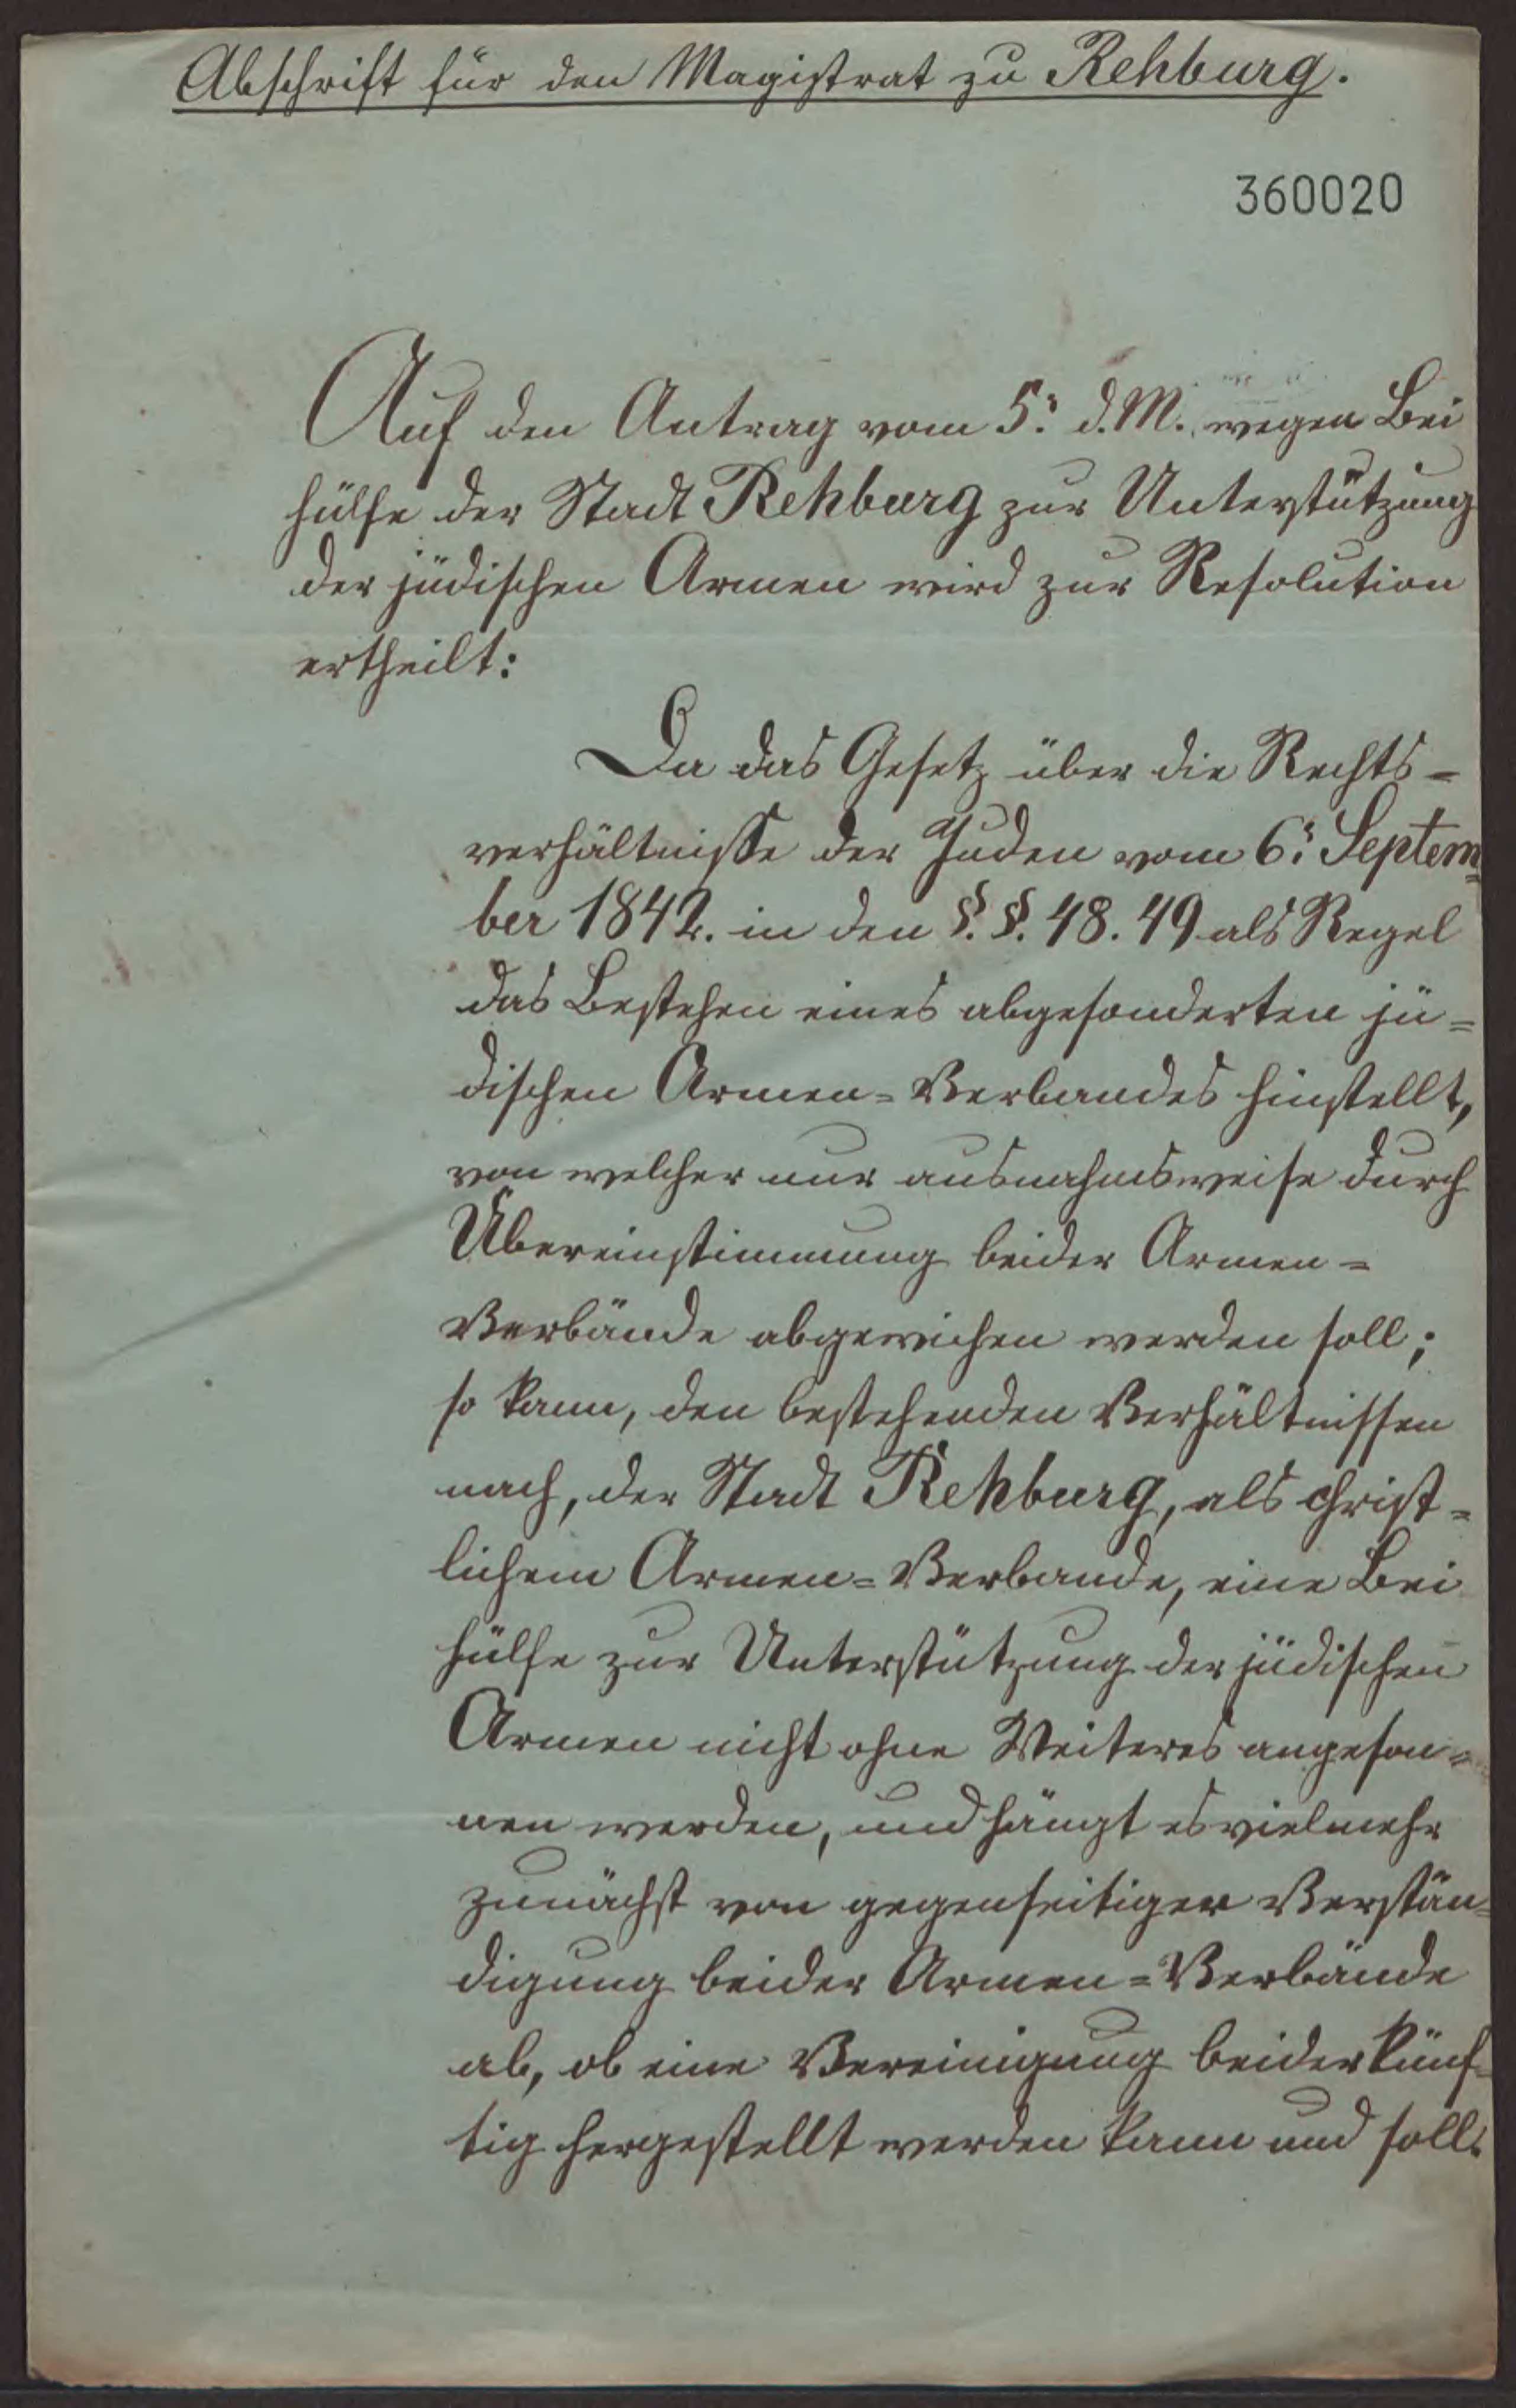 Abschrift für den Magistrat zu Rehburg.
360020
Auf den Antrag vom 5: d. M. wegen Bei
hülfe der Stadt Rehburg zur Unterstützung
der jüdischen Armen wird zur Resolution
ertheilt:
Da das Gesetz über die Rechts=
verhältnisse der Juden vom 6: Septem=
ber 1842. in den §. §. 48. 49 als Regel
das Bestehen eines abgesonderten jü=
dischen Armen=Verbandes hinstellt,
von welcher nur ausnahmsweise durch
Übereinstimmung beider Armen=
Verbände abgewichen werden soll;
so kann, den bestehenden Verhältnissen
nach, der Stadt Rehburg, als christ=
lichem Armen=Verbande, eine Bei
hülfe zur Unterstützung der jüdischen
Armen nicht ohne Weiteres angeson=
nen werden, und hängt es vielmehr
zunächst von gegenseitiger Verstän=
digung beider Armen=Verbände
ab, ob eine Vereinigung beider künf=
tig hergestellt werden kann und soll.